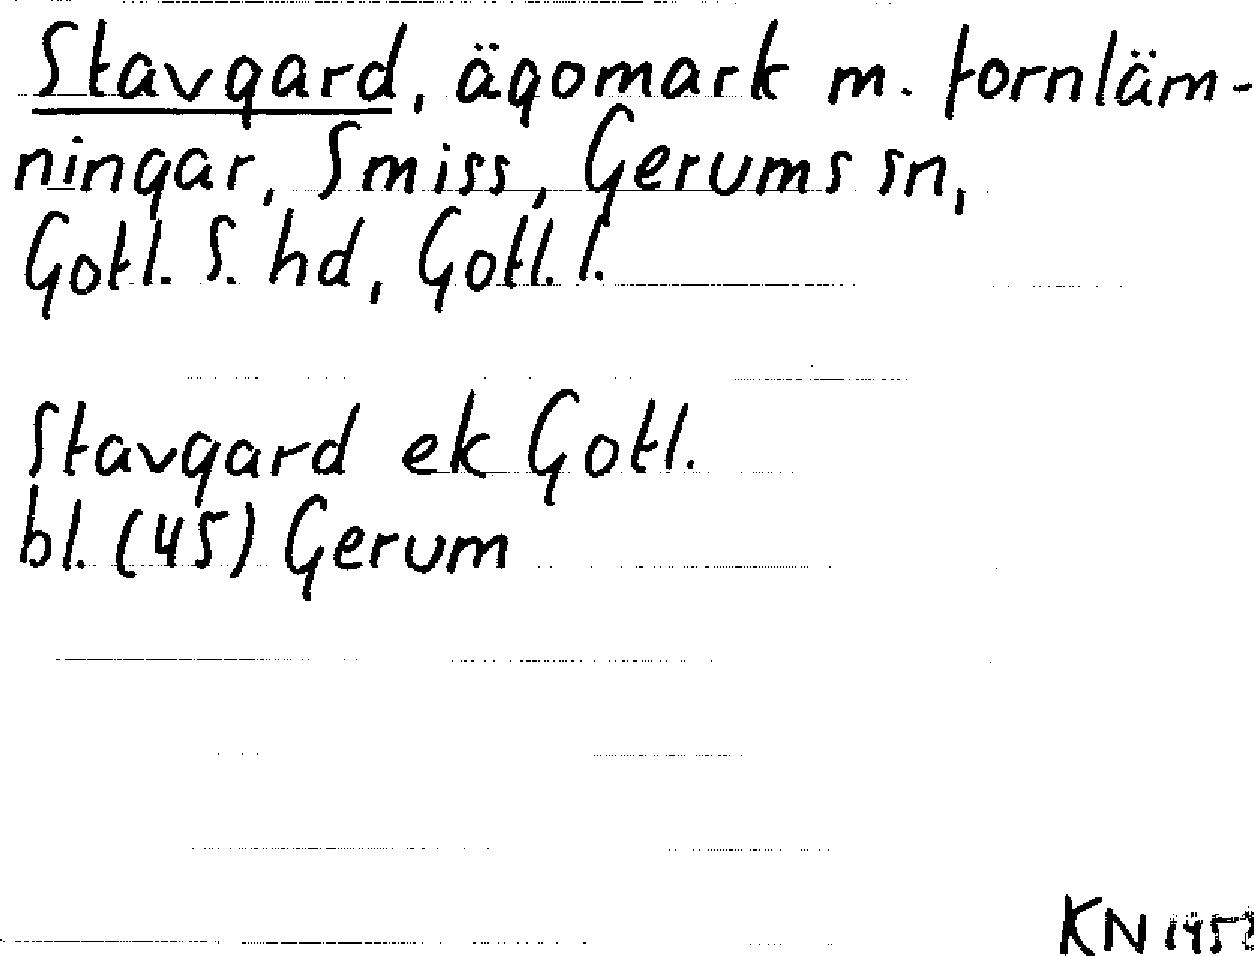 Stavgard, ägomark m. fornläm-
ningar, Smiss, Gerums sn,
Gotl. S. hd, Gotl. l.
Stavgard ek Gotl.
bl. (45) Gerum
KN